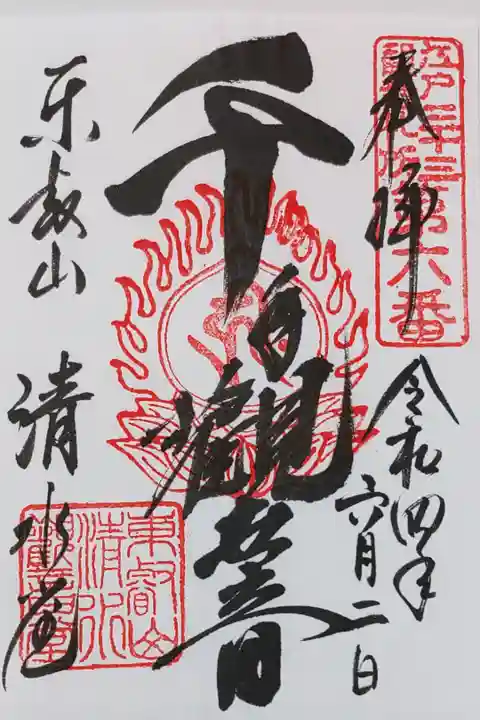 奉拝
江戸三十三観音札所第六番
令和四年
六月二日
千手観世音
東叡山 清水堂
東叡山
清水
観音堂